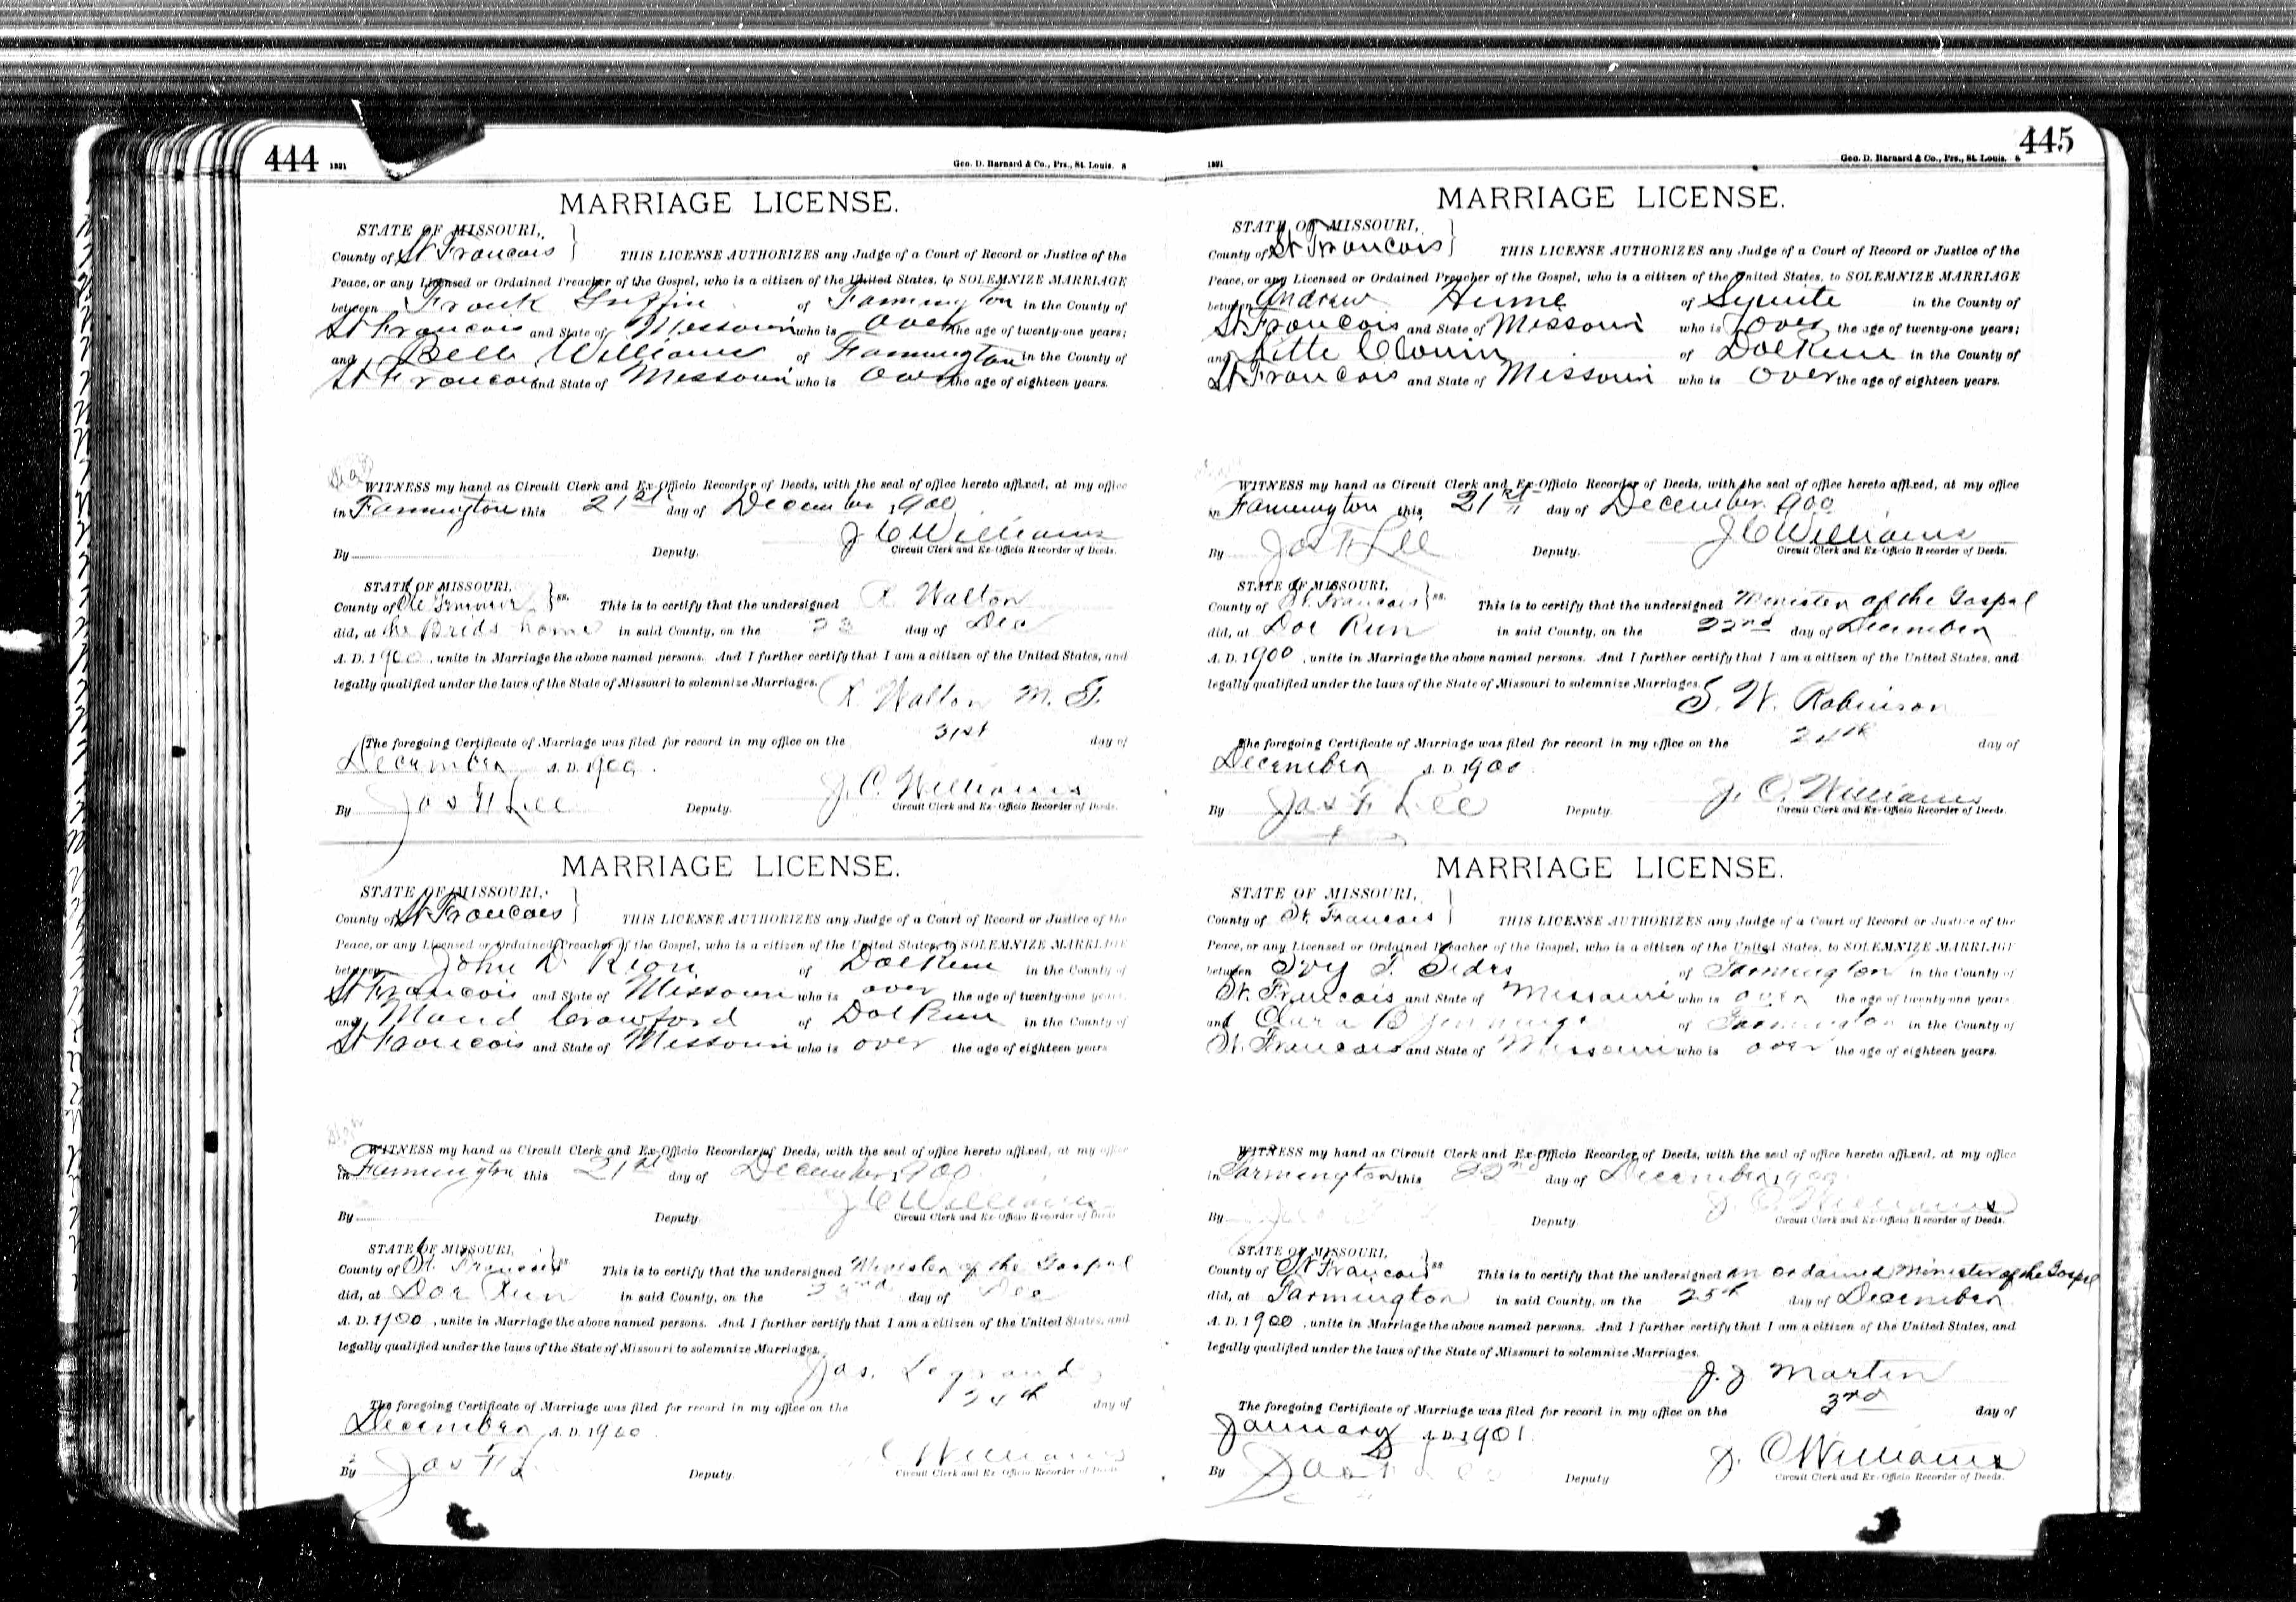 444 1321 Geo. D. Barnard & Co., Prs., St. Louis. 8
MARRIAGE LICENSE.
STATE OF MISSOURI,
County of St Francois } THIS LICENSE AUTHORIZES any Judge of a Court of Record or Justice of the
Peace, or any Licensed or Ordained Preacher of the Gospel, who is a citizen of the United States, to SOLEMNIZE MARRIAGE
between Frank Griffin of Farmington in the County of
St Francois and State of Missouri who is Over the age of twenty-one years;
and Bell Williams of Farmington in the County of
St Francois and State of Missouri who is Over the age of eighteen years.
WITNESS my hand as Circuit Clerk and Ex-Officio Recorder of Deeds, with the seal of office hereto affixed, at my office
in Farmington this 21st day of December 1900
J C Williams
By Deputy. Circuit Clerk and Ex-Officio Recorder of Deeds.
STATE OF MISSOURI,
County of } ss. This is to certify that the undersigned R Walton
did, at the Brids home in said County, on the 23 day of Dec
A. D. 1900, unite in Marriage the above named persons. And I further certify that I am a citizen of the United States, and
legally qualified under the laws of the State of Missouri to solemnize Marriages.
R Walton M. G.
The foregoing Certificate of Marriage was filed for record in my office on the 31st day of
December A. D. 1900.
J. C. Williams
By Jas F Lee Deputy. Circuit Clerk and Ex-Officio Recorder of Deeds.
MARRIAGE LICENSE.
STATE OF MISSOURI,
County of St Francois } THIS LICENSE AUTHORIZES any Judge of a Court of Record or Justice of the
Peace, or any Licensed or Ordained Preacher of the Gospel, who is a citizen of the United States, to SOLEMNIZE MARRIAGE
between John D. Rion of DoeRun in the County of
St Francois and State of Missouri who is over the age of twenty-one years.
and Maud Crawford of DoeRun in the County of
St Francois and State of Missouri who is over the age of eighteen years
WITNESS my hand as Circuit Clerk and Ex-Officio Recorder of Deeds, with the seal of office hereto affixed, at my office
in Farmington this 21st day of December 1900
J C Williams
By Deputy. Circuit Clerk and Ex-Officio Recorder of Deeds
STATE OF MISSOURI,
County of St. Francois } ss. This is to certify that the undersigned Minister of the Gospel
did, at Doe Run in said County, on the day of Dec
A. D. 1900, unite in Marriage the above named persons. And I further certify that I am a citizen of the United States, and
legally qualified under the laws of the State of Missouri to solemnize Marriages.
Jas. Legrand
The foregoing Certificate of Marriage was filed for record in my office on the 24th day of
December A. D. 1900.
Williams
By Jas F L Deputy Circuit Clerk and Ex-Officio Recorder of Deeds
1321 Geo. D. Barnard & Co., Prs., St. Louis. 8 445
MARRIAGE LICENSE.
STATE OF MISSOURI,
County of St Francois } THIS LICENSE AUTHORIZES any Judge of a Court of Record or Justice of the
Peace, or any Licensed or Ordained Preacher of the Gospel, who is a citizen of the United States, to SOLEMNIZE MARRIAGE
between Andrew Hume of Syenite in the County of
St Francois and State of Missouri who is over the age of twenty-one years;
and of DoeRun in the County of
St Francois and State of Missouri who is Over the age of eighteen years.
WITNESS my hand as Circuit Clerk and Ex-Officio Recorder of Deeds, with the seal of office hereto affixed, at my office
in Farmington this 21st day of December 1900
J C Williams
By Jas F Lee Deputy. Circuit Clerk and Ex-Officio Recorder of Deeds.
STATE OF MISSOURI,
County of St. Francois } ss. This is to certify that the undersigned Minister of the Gospel
did, at Doe Run in said County, on the 22nd day of December
A. D. 1900, unite in Marriage the above named persons. And I further certify that I am a citizen of the United States, and
legally qualified under the laws of the State of Missouri to solemnize Marriages.
S. W. Robinson
The foregoing Certificate of Marriage was filed for record in my office on the 24th day of
December A. D. 1900
J. C. Williams
By Jas F Lee Deputy. Circuit Clerk and Ex-Officio Recorder of Deeds.
MARRIAGE LICENSE.
STATE OF MISSOURI,
County of St. Francois } THIS LICENSE AUTHORIZES any Judge of a Court of Record or Justice of the
Peace, or any Licensed or Ordained Preacher of the Gospel, who is a citizen of the United States, to SOLEMNIZE MARRIAGE
between Ivy T. of Farmington in the County of
St. Francois and State of Missouri who is over the age of twenty-one years
and Clara B Jennings of Farmington in the County of
St. Francois and State of Missouri who is over the age of eighteen years.
WITNESS my hand as Circuit Clerk and Ex-Officio Recorder of Deeds, with the seal of office hereto affixed, at my office
in Farmington this 22nd day of December 1900
J. C. Williams
By Deputy. Circuit Clerk and Ex-Officio Recorder of Deeds.
STATE OF MISSOURI,
County of St Francois } ss This is to certify that the undersigned an ordained Minister of the Gospel
did, at Farmington in said County, on the 25th day of December
A. D. 1900, unite in Marriage the above named persons. And I further certify that I am a citizen of the United States, and
legally qualified under the laws of the State of Missouri to solemnize Marriages.
J. J Martin
The foregoing Certificate of Marriage was filed for record in my office on the 3rd day of
January A. D. 1901.
J. C Williams
By Jas F Lee Deputy Circuit Clerk and Ex-Officio Recorder of Deeds.